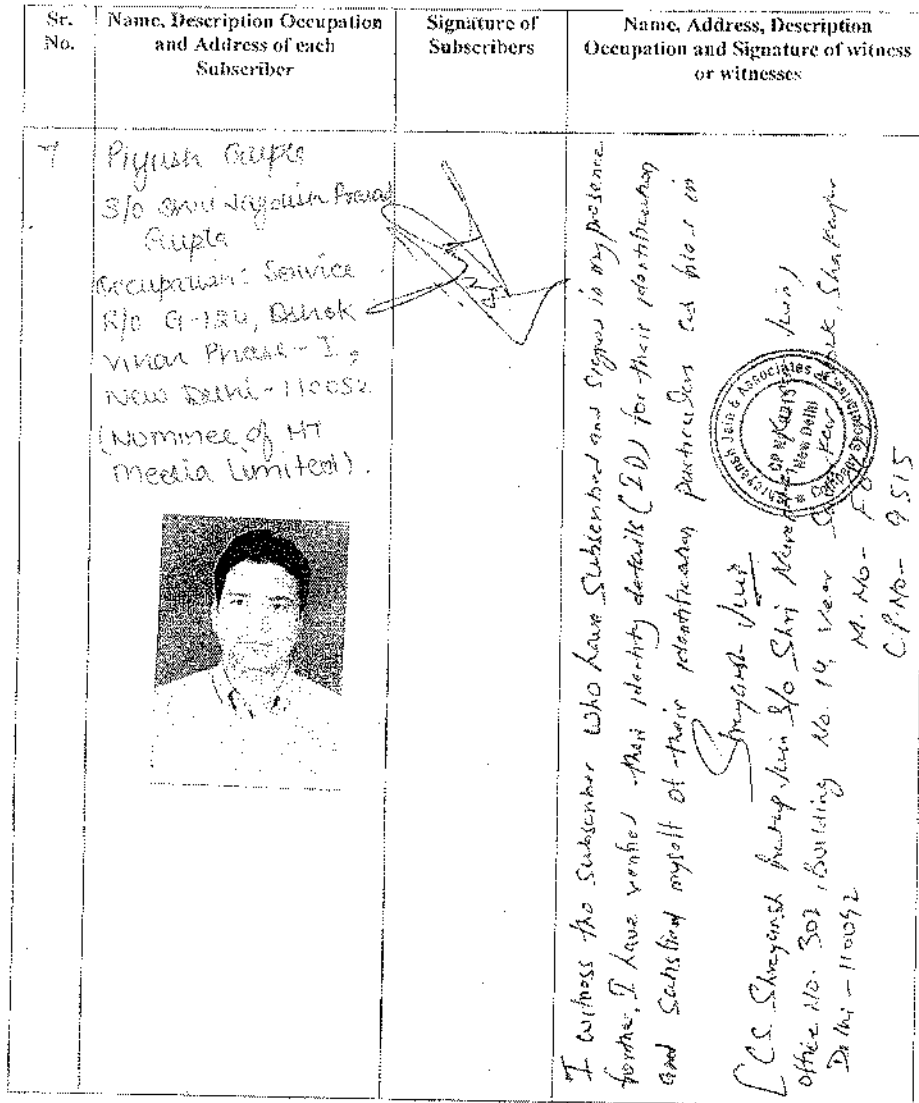 Sr. No.
Name, Description Occupation and Address of each Subscriber
Signature of Subscribers
Name, Address, Description Occupation and Signature of witness or witnesses
7
Piyush Gupta
S/o Shri Jagdish Prasad
Gupta
Occupation: Service
R/o G-124, Ashok
Vihar Phase-I,
New Delhi-110052
(Nominee of HT
Media Limited).
I witness the subscriber who have subscribed and signed in my presence
further, I have verified their identity details (ID) for their identification
and satisfied myself of their identification particulars as filled in
Shreyansh Jain
[CS Shreyansh Pratap Jain S/o Shri Jain]
Office No. 302, Building No. 14, Veer Shakarpur
Delhi-110092
M. No- F
C.P. No- 9515
Shreyansh Jain & Associates
New Delhi
Company Secretaries